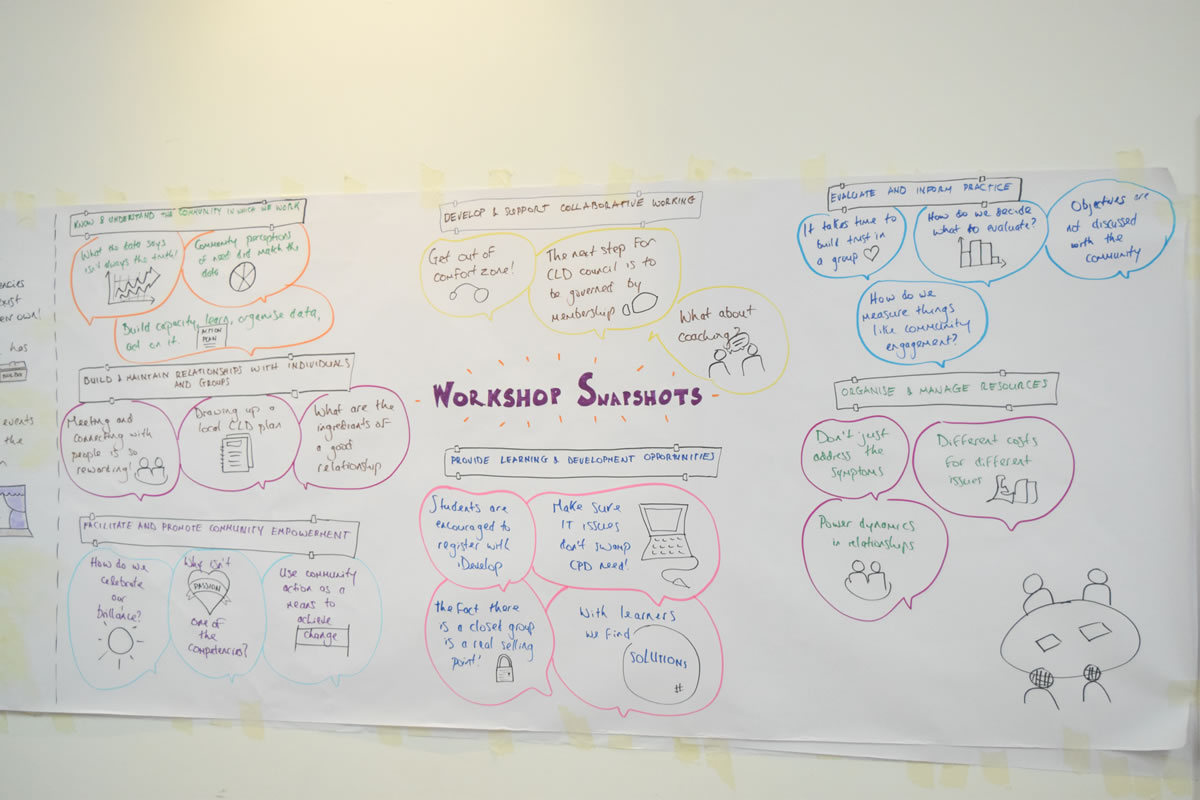 encies
has
events
the
KNOW & UNDERSTAND THE COMMUNITY IN WHICH WE WORK
What the data says
isn't always the truth!
Community perceptions
of need did match the
data
Build capacity, learn, organise data,
act on it.
ACTION
PLAN
BUILD & MAINTAIN RELATIONSHIPS WITH INDIVIDUALS
AND GROUPS
Meeting and
connecting with
people is so
rewarding!
Drawing up a
local CLD plan
What are the
ingredients of
a good
relationship
FACILITATE AND PROMOTE COMMUNITY EMPOWERMENT
How do we
celebrate
our
brilliance?
Why isn't
PASSION
one of
the
competencies?
Use community
action as a
means to
achieve
change
DEVELOP & SUPPORT COLLABORATIVE WORKING
Get out of
comfort zone!
The next step for
CLD council is to
be governed by
membership
What about
coaching?
WORKSHOP SNAPSHOTS
PROVIDE LEARNING & DEVELOPMENT OPPORTUNITIES
Students are
encouraged to
register with
iDevelop
Make sure
IT issues
don't swamp
CPD need!
the fact there
is a closed group
is a real selling
point!
With learners
we find
SOLUTIONS
#
EVALUATE AND INFORM PRACTICE
It takes time to
build trust in
a group
How do we decide
what to evaluate?
Objectives are
not discussed
with the
community
How do we
measure things
like community
engagement?
ORGANISE & MANAGE RESOURCES
Don't just
address the
symptoms
Different costs
for different
issues
Power dynamics
in relationships